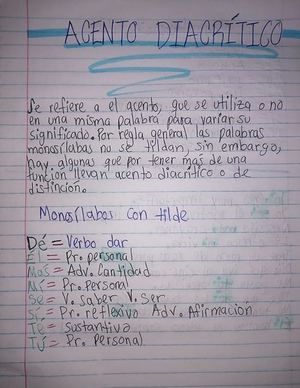 ACENTO DIACRÍTICO
Se refiere a el acento, que se utiliza o no
en una misma palabra para variar su
significado. Por regla general las palabras
monosílabas no se tildan, sin embargo,
hay algunas que por tener más de una
función llevan acento diacrítico o de
distinción.
Monosílabos con tilde
Dé = Verbo dar
Él = Pr. personal
Más = Adv. Cantidad
Mí = Pr. Personal
Sé = V. saber V. Ser
Sí = Pr. reflexivo Adv. Afirmación
Té = Sustantivo
Tú = Pr. Personal